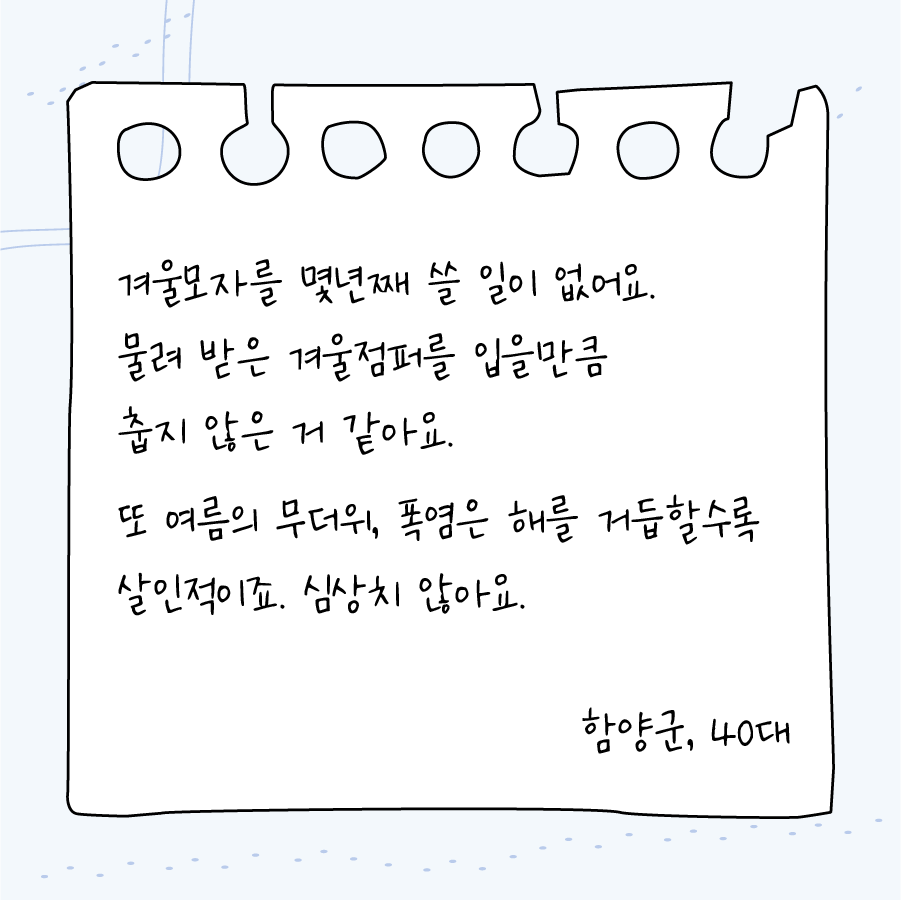 겨울모자를 몇년째 쓸 일이 없어요.
물려 받은 겨울점퍼를 입을만큼
춥지 않은 거 같아요.
또 여름의 무더위, 폭염은 해를 거듭할수록
살인적이죠. 심상치 않아요.
함양군, 40대